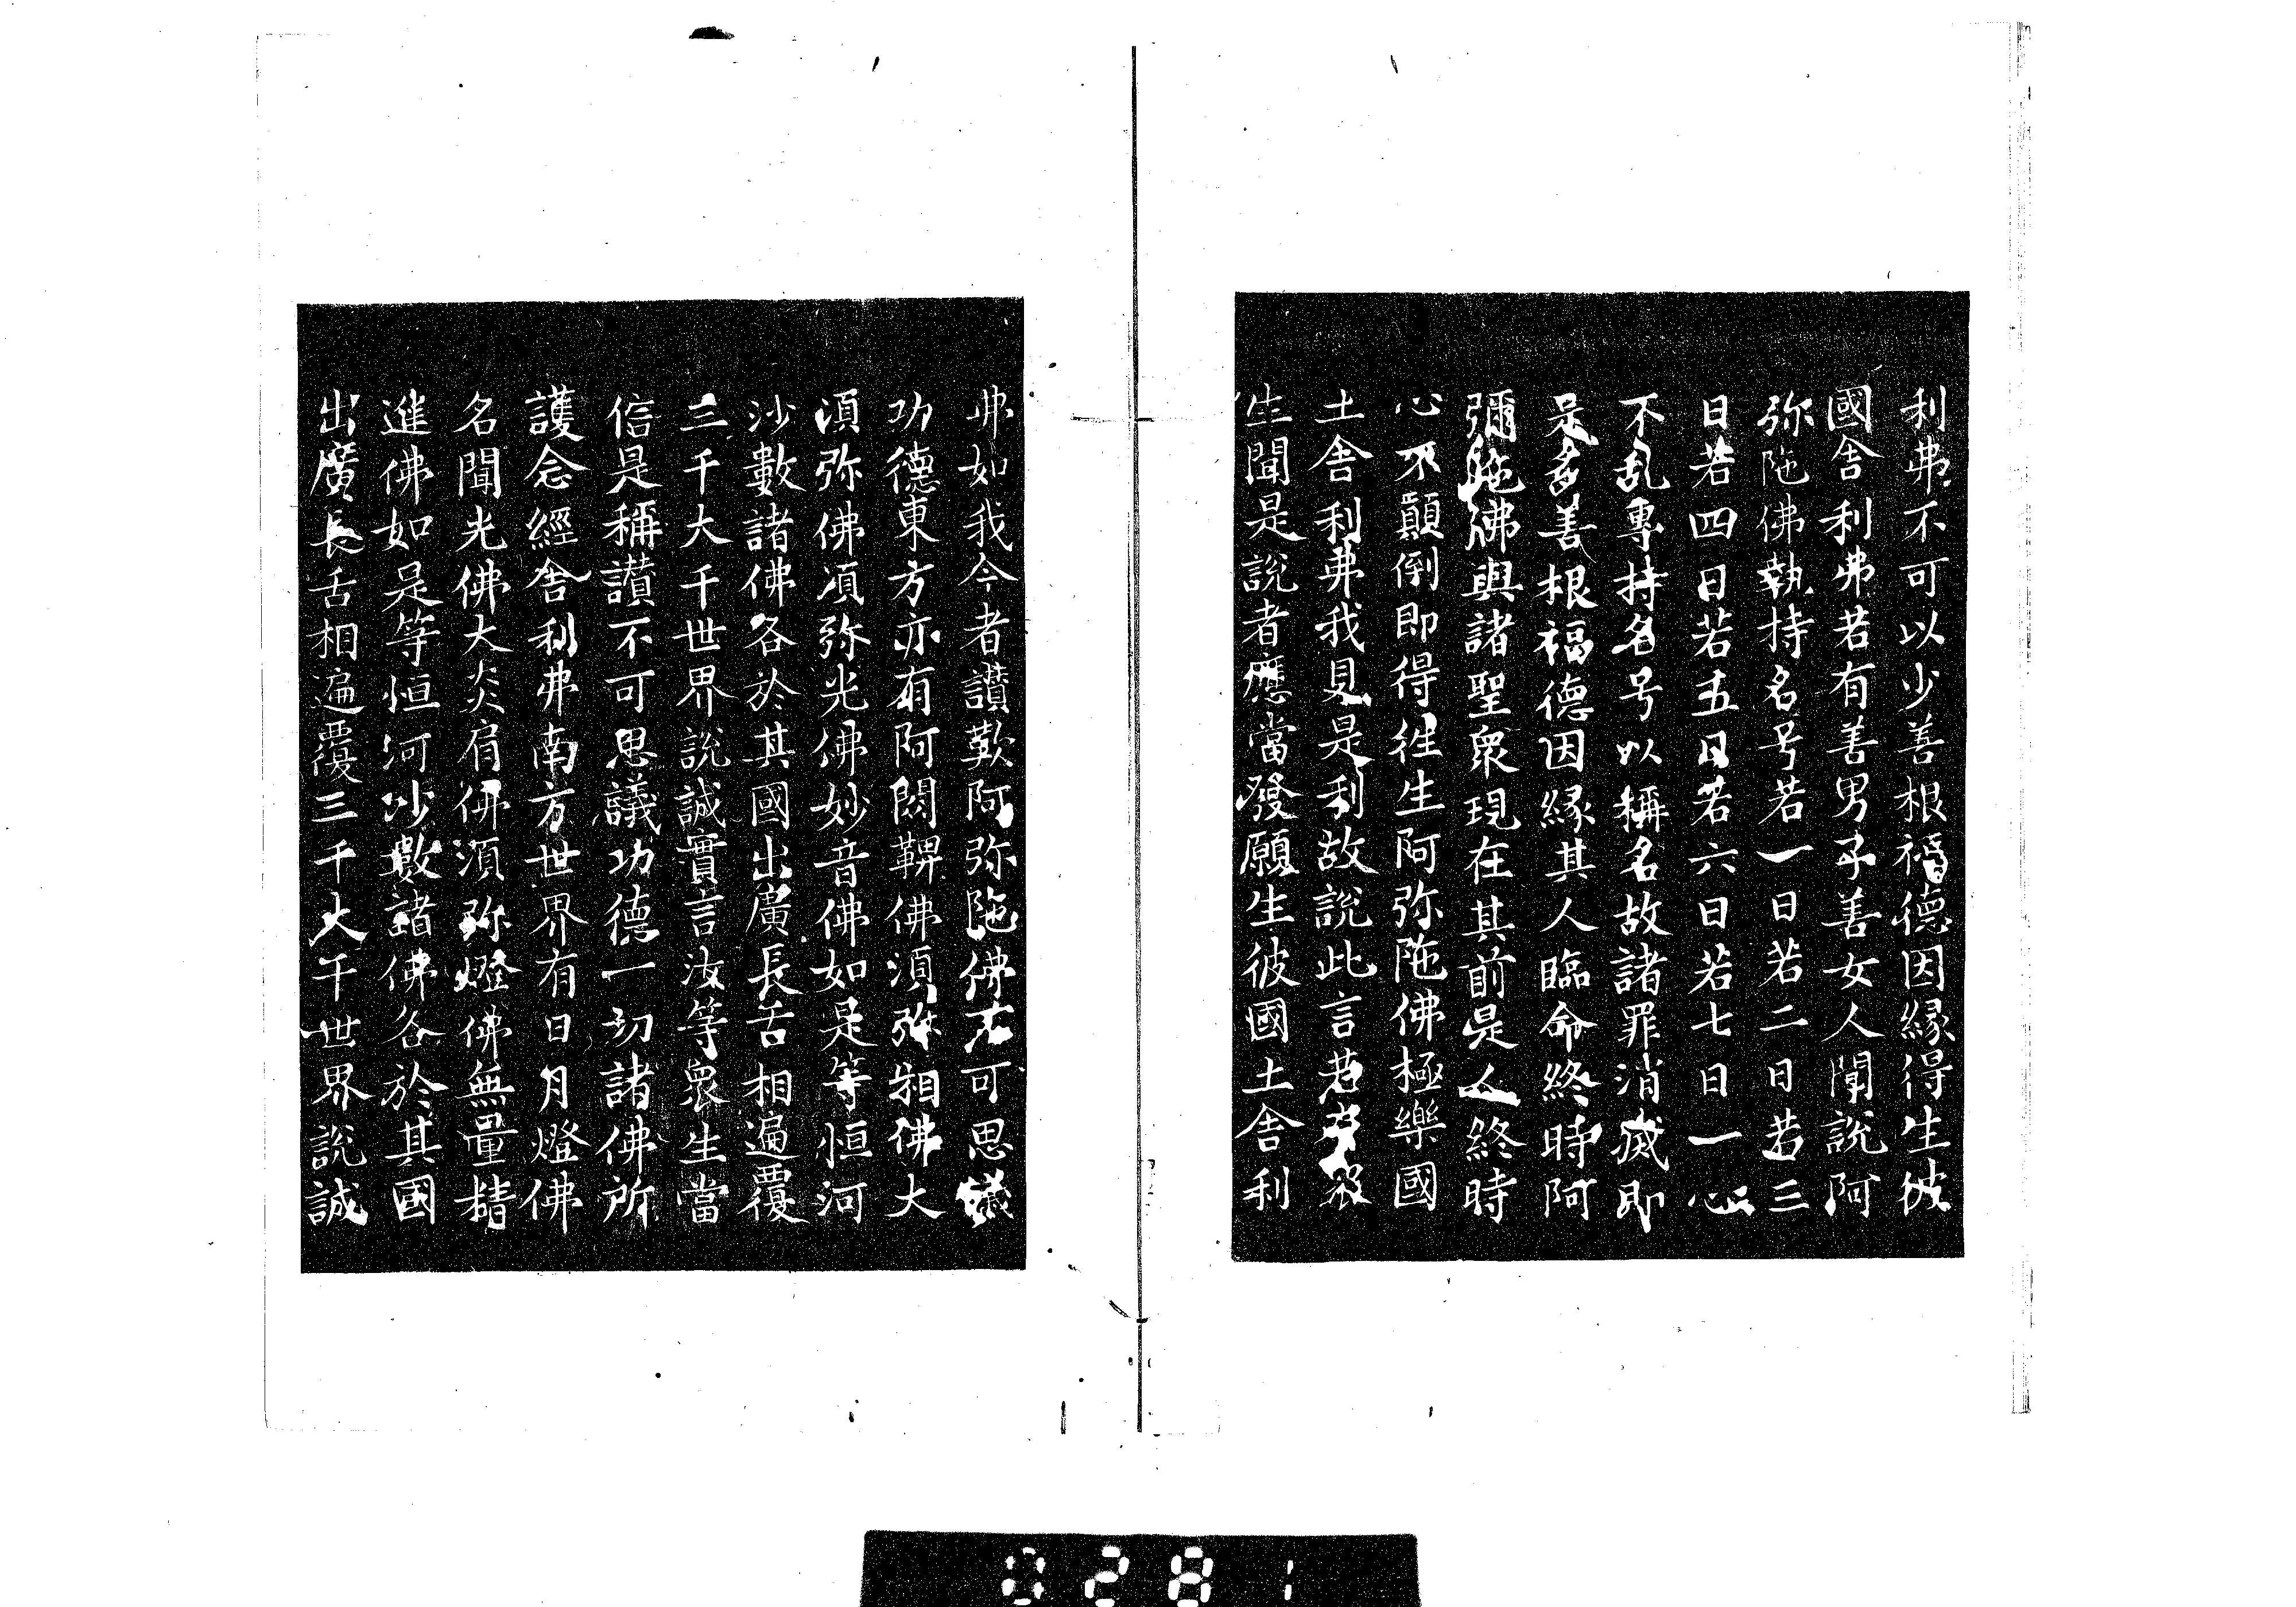 利弗不可以少善根福德因緣得生彼
國舍利弗若有善男子善女人聞說阿
弥陁佛執持名号若一日若二日若三
日若四日若五日若六日若七日一心
不乱專持名号以稱名故諸罪消滅即
是多善根福德因緣其人臨命終時阿
彌陁佛與諸聖衆現在其前是人終時
心不顛倒即得往生阿弥陁佛極樂國
土舍利弗我見是利故說此言若有衆
生聞是說者應當發願生彼國土舍利
弗如我今者讚歎阿弥陁佛不可思議
功德東方亦有阿閦鞞佛湏弥相佛大
湏弥佛湏弥光佛妙音佛如是等恒河
沙數諸佛各於其國出廣長舌相遍覆
三千大千世界說誠實言汝等衆生當
信是稱讚不可思議功德一切諸佛所
護念經舍利弗南方世界有日月燈佛
名聞光佛大炎肩佛湏弥燈佛無量精
進佛如是等恒河沙數諸佛各於其國
出廣長舌相遍覆三千大千世界說誠
0281